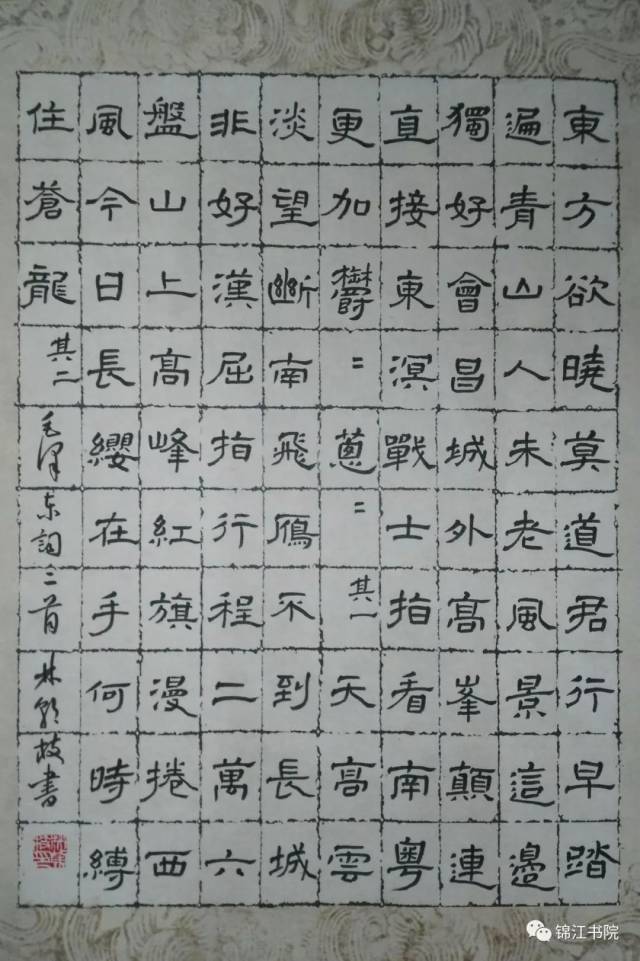 東方欲曉莫道君行早踏
遍青山人未老風景這邊
獨好會昌城外高峯顛連
直接東溟戰士指看南粵
更加鬱〻蔥〻其一天高雲
淡望斷南飛鴈不到長城
非好漢屈指行程二萬六
盤山上高峰紅旗漫捲西
風今日長纓在手何時縛
住蒼龍其二毛澤东詞二首林枝書
锦江书院